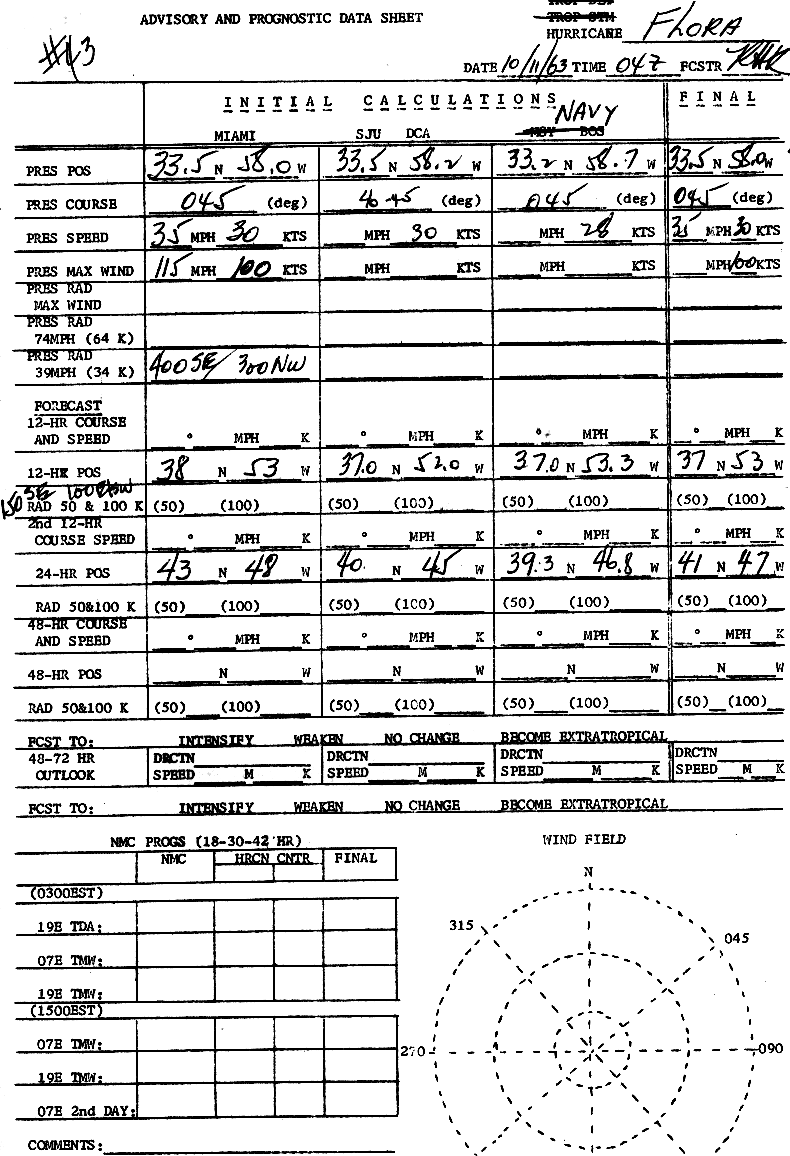 TROP DEP
TROP STM
ADVISORY AND PROGNOSTIC DATA SHEET
HURRICANE FLORA
#13
DATE 10/11/63 TIME 04Z FCSTR
INITIAL CALCULATIONS FINAL
NAVY
MIAMI SJU DCA MSY BOS
PRES POS 33.5 N 58.0 W 33.5 N 58.2 W 33.2 N 58.7 W 33.5 N 58.0 W
PRES COURSE 045 (deg) 45 (deg) 045 (deg) 045 (deg)
PRES SPEED 35 MPH 30 KTS MPH 30 KTS MPH 28 KTS 35 MPH 30 KTS
PRES MAX WIND 115 MPH 100 KTS MPH KTS MPH KTS MPH 100 KTS
PRES RAD
MAX WIND
PRES RAD
74MPH (64 K)
PRES RAD
39MPH (34 K) 400 SE/ 300 NW
FORECAST
12-HR COURSE
AND SPEED ° MPH K ° MPH K ° MPH K ° MPH K
12-HR POS 38 N 53 W 37.0 N 52.0 W 37.0 N 53.3 W 37 N 53 W
150 SE 100
RAD 50 & 100 K (50) (100) (50) (100) (50) (100) (50) (100)
2nd 12-HR
COURSE SPEED ° MPH K ° MPH K ° MPH K ° MPH K
24-HR POS 43 N 48 W 40. N 45 W 39.3 N 46.8 W 41 N 47 W
RAD 50&100 K (50) (100) (50) (100) (50) (100) (50) (100)
48-HR COURSE
AND SPEED ° MPH K ° MPH K ° MPH K ° MPH K
48-HR POS N W N W N W N W
RAD 50&100 K (50) (100) (50) (100) (50) (100) (50) (100)
FCST TO: INTENSIFY WEAKEN NO CHANGE BECOME EXTRATROPICAL
48-72 HR DRCTN DRCTN DRCTN DRCTN
OUTLOOK SPEED M K SPEED M K SPEED M K SPEED M K
FCST TO: INTENSIFY WEAKEN NO CHANGE BECOME EXTRATROPICAL
NMC PROGS (18-30-42 HR) WIND FIELD
NMC HRCN CNTR FINAL
N
(0300EST)
19E TDA: 315 045
07E TMW:
19E TMW:
(1500EST)
07E TMW: 270 090
19E TMW:
07E 2nd DAY:
COMMENTS: